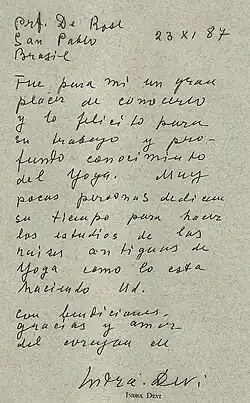 Prf. De Rose
San Pablo 23 XI 87
Brasil
Fue para mi un gran
placer de conocerlo
y lo felicito para
su trabajo y pro-
fundo conocimiento
del Yoga. Muy
pocas personas dedican
su tiempo para hacer
los estudios de las
raises antiguas de
Yoga como lo esta
haciendo Ud.
con bendiciones,
gracias y amor
del corazon de
Indra Devi
INDRA DEVI